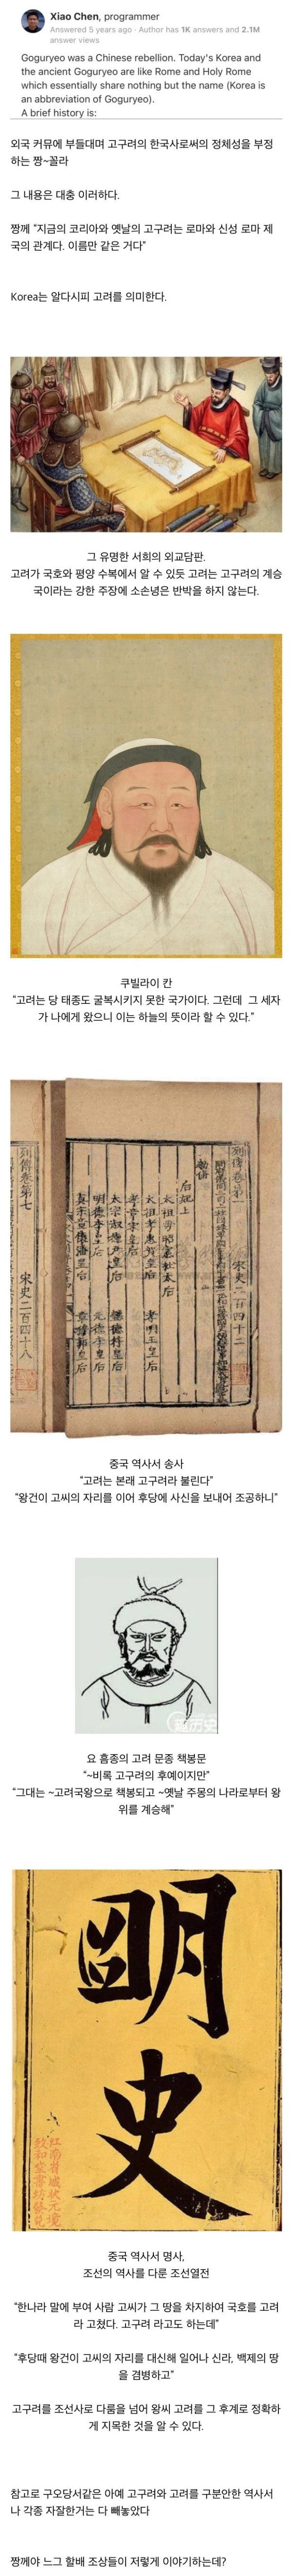 Xiao Chen, programmer
Answered 5 years ago · Author has 1K answers and 2.1M
answer views
Goguryeo was a Chinese rebellion. Today's Korea and
the ancient Goguryeo are like Rome and Holy Rome
which essentially share nothing but the name (Korea is
an abbreviation of Goguryeo).
A brief history is:
외국 커뮤에 부들대며 고구려의 한국사로써의 정체성을 부정
하는 짱~꼴라
그 내용은 대충 이러하다.
짱께 "지금의 코리아와 옛날의 고구려는 로마와 신성 로마 제
국의 관계다. 이름만 같은 거다"
Korea는 알다시피 고려를 의미한다.
그 유명한 서희의 외교담판.
고려가 국호와 평양 수복에서 알 수 있듯 고려는 고구려의 계승
국이라는 강한 주장에 소손녕은 반박을 하지 않는다.
쿠빌라이 칸
"고려는 당 태종도 굴복시키지 못한 국가이다. 그런데 그 세자
가 나에게 왔으니 이는 하늘의 뜻이라 할 수 있다."
列傳卷第七
宋史二百四十八
列傳卷第一
宋史二百四十二
后妃上
중국 역사서 송사
"고려는 본래 고구려라 불린다"
"왕건이 고씨의 자리를 이어 후당에 사신을 보내어 조공하니"
요 흥종의 고려 문종 책봉문
"~비록 고구려의 후예이지만"
"그대는 ~고려국왕으로 책봉되고 ~옛날 주몽의 나라로부터 왕
위를 계승해"
明史
중국 역사서 명사,
조선의 역사를 다룬 조선열전
"한나라 말에 부여 사람 고씨가 그 땅을 차지하여 국호를 고려
라 고쳤다. 고구려 라고도 하는데"
"후당때 왕건이 고씨의 자리를 대신해 일어나 신라, 백제의 땅
을 겸병하고"
고구려를 조선사로 다룸을 넘어 왕씨 고려를 그 후계로 정확하
게 지목한 것을 알 수 있다.
참고로 구오당서같은 아예 고구려와 고려를 구분안한 역사서
나 각종 자잘한거는 다 빼놓았다
짱께야 느그 할배 조상들이 저렇게 이야기하는데?